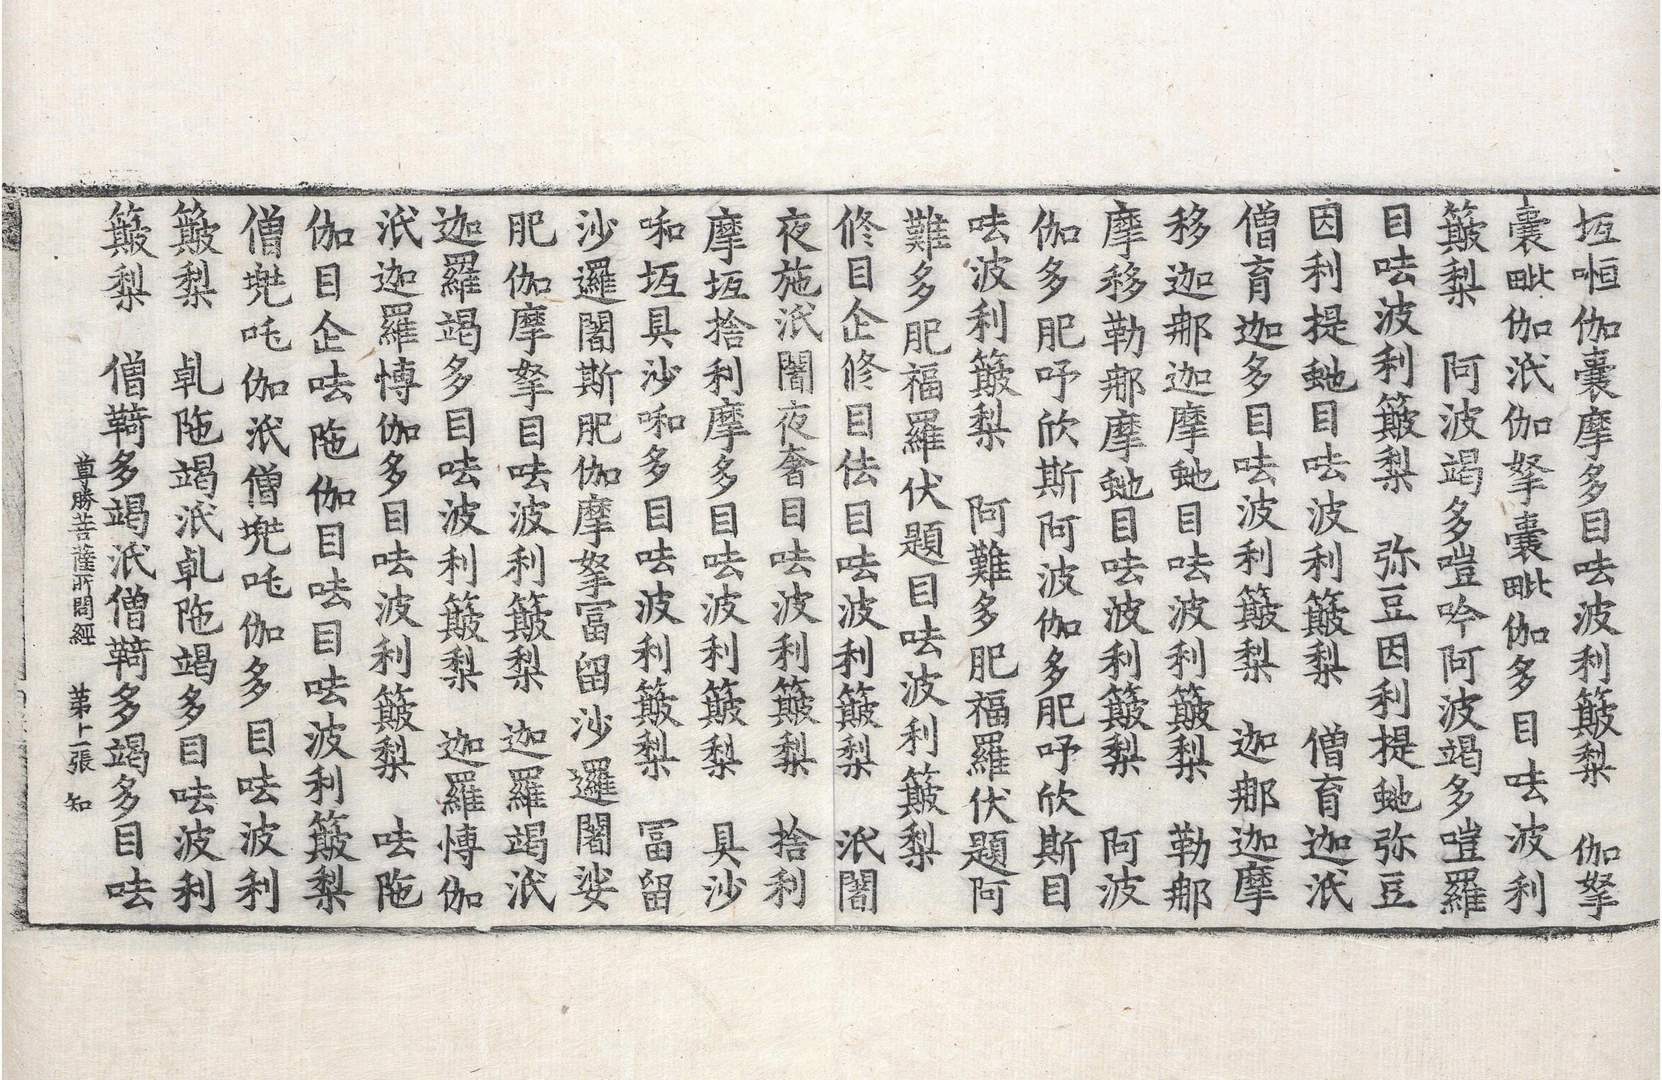 坘𠷐伽囊摩多目呿波利簸梨　伽拏
囊毗伽泜伽拏囊毗伽多目呿波利
簸梨　阿波竭多嘊吟阿波竭多嘊羅
目呿波利簸梨　弥豆因利提虵弥豆
因利提虵目呿波利簸梨　僧育迦泜
僧育迦多目呿波利簸梨　迦𨚗迦摩
移迦𨚗迦摩虵目呿波利簸梨　勒𨚗
摩移勒𨚗摩虵目呿波利簸梨　阿波
伽多肥呼欣斯阿波伽多肥呼欣斯目
呿波利簸梨　阿難多肥福羅伏題阿
難多肥福羅伏題目呿波利簸梨
修目企修目佉目呿波利簸梨　泜闍
夜施泜闍夜奢目呿波利簸梨　捨利
摩坘捨利摩多目呿波利簸梨　具沙
和坘具沙和多目呿波利簸梨　冨留
沙邏闍斯肥伽摩拏冨留沙邏闍娑
肥伽摩拏目呿波利簸梨　迦羅竭泜
迦羅竭多目呿波利簸梨　迦羅愽伽
泜迦羅愽伽多目呿波利簸梨　呿陁
伽目企呿陁伽目呿目呿波利簸梨
僧兠吒伽泜僧兠吒伽多目呿波利
簸梨　乹陁竭泜乹陁竭多目呿波利
簸梨　僧䩭多竭泜僧䩭多竭多目呿
尊勝菩薩所問經　苐十一張　知